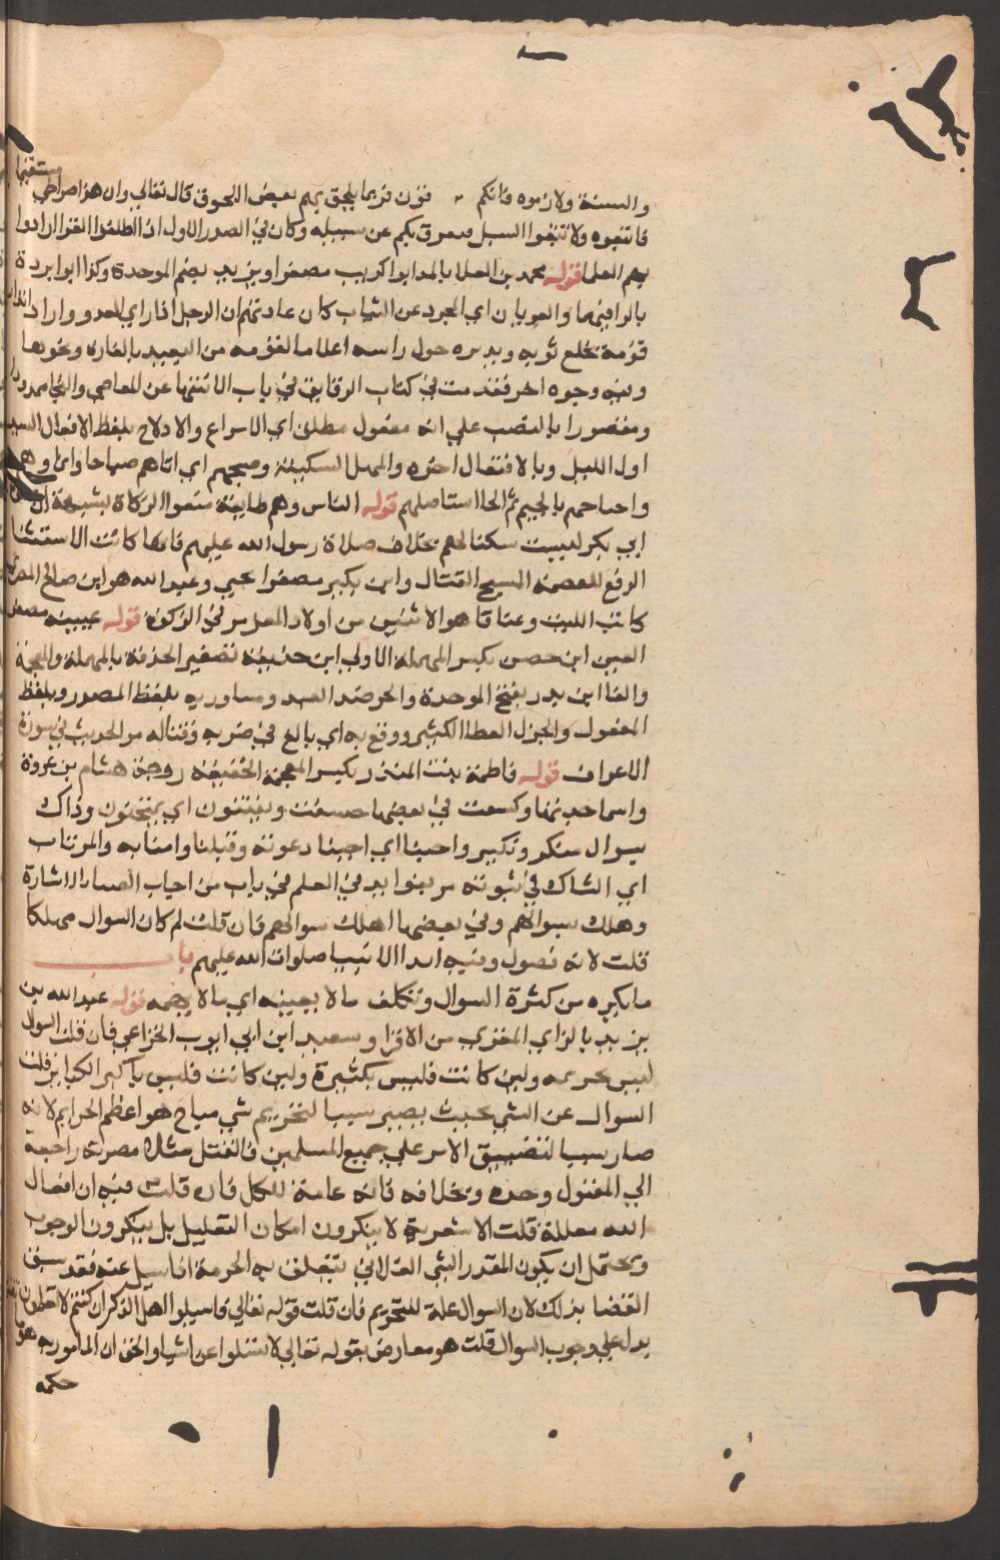 والسنة ولازموه فانكم فزتم فربما يلحق بهم بعض اللحوق قال تعالى وان هذا صراطي مستقيما
فاتبعوه ولا تتبعوا السبل فتفرق بكم عن سبيله وكان في الصدر الاول اذا اطلقوا القرا ارادوا
بهم العلما قوله محمد بن العلا بالمد ابو كريب مصغرا وبريد بضم الموحدة وكذا ابو بردة
بالرا فيهما والعريان اي المجرد عن الثياب كان عادتهم ان الرجل اذا راي العدو واراد انذار
قومه يخلع ثوبه ويديره حول راسه اعلاما لقومه من البعيد بالغارة ونحوها
وفيه وجوه اخر فقد مت في كتاب الرقاق في باب الانتها عن المعاصي والنجا ممدودا
ومقصورا بالنصب علي انه مفعول مطلق اي الاسراع والادلاج بلفظ الافعال السير
اول الليل وبالافتعال اخره والمهل السكينة وصبحهم اي اتاهم صباحا
واجتاحهم بالجيم ثم الحا استاصلهم قوله الناس وهم طايفة منعوا الزكاة بشبهة ان صلاة
ابي بكر ليست سكنا لهم بخلاف صلاة رسول الله عليهم فانها كانت
الرفع للعصمة المبيح القتال وابن بكير مصغرا يحيي وعبد الله هو ابن صالح المصري
كاتب الليث وعناقا هو الانثي من اولاد المعز مر في الزكوة قوله عيينة مصغر
العين ابن حصن بكسر المهملة الاولي ابن حذيفة تصغير الحذفة بالمهملة والمعجمة
والفا ابن بدر بفتح الموحدة والحر ضد العبد ومشاوريه بلفظ المصدر وبلفظ
المفعول والجزل العطا الكثير ووقع به اي بالغ في ضربه وقتاله مر الحديث في سورة
الاعراف قوله فاطمة بنت المنذر بكسر المعجمة الخفيفة زوجة هشام بن عروة
واسما جدتهما وكسفت في بعضها خسفت وتفتنون اي يمتحنون وذاك
سوال منكر ونكير واجبنا اي اجبنا دعوته وقبلنا وامنا به والمرتاب
اي الشاك في نبوته مر بفوايد في العلم في باب من اجاب الفتيا بالاشارة
وهلك بسوالهم وفي بعضها اهلك سوالهم فان قلت لم كان السوال مهلكا
قلت لانه فضول وفيه ايذا الانبيا صلوات الله عليهم باب
ما يكره من كثرة السوال وتكلف ما لا يعنيه اي ما لا يهمه قوله عبد الله بن
يزيد بالزاي المقري من الاقرا وسعيد ابن ابي ايوب الخزاعي فان قلت السوال
ليس بجريمة ولين كانت فليس بكبيرة ولين كانت فليس باكبر الكباير قلت
السوال عن الشي بحيث يصير سببا لتحريم شي مباح هو اعظم الجرايم لانه
صار سببا لتضييق الامر علي جميع المسلمين فالقتل مثلا مضرته راجعة
الي المقتول وحده وبخلافه فانه عامة للكل فان قلت فيه ان افعال
الله معللة قلت الاشعرية لا ينكرون امكان التعليل بل ينكرون الوجوب
ويحتمل ان يكون المقدر الشي الفلاني يتعلق به الحرمة اذا سيل عنه فقد سبق
القضا بذلك لان السوال علة للتحريم فان قلت قوله تعالي فاسيلوا اهل الذكر ان كنتم لا تعلمون
يدل علي وجوب السوال قلت هو معارض بقوله تعالي لا تسئلوا عن اشيا والحق ان المامور به هو
حكمه